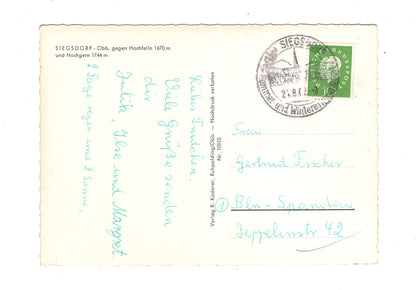 SIEGSDORF - Obb. gegen Hochfelln 1670 m
und Hochgern 1744 m
Liebes Trudchen.
Viele Grüße senden
dir
Julik, Ilse und Margret.
2 Tage regen und 2 Sonne.
Verlag R. Koderer, Ruhpolding/Obb. — Nachdruck verboten
Nr. 10010
SIEGSDORF
Sommer- und Winter
DEUTSCHE BUNDESPOST
Frau
Gertrud Fischer
Bln - Spandau
Zeppelinstr. 42